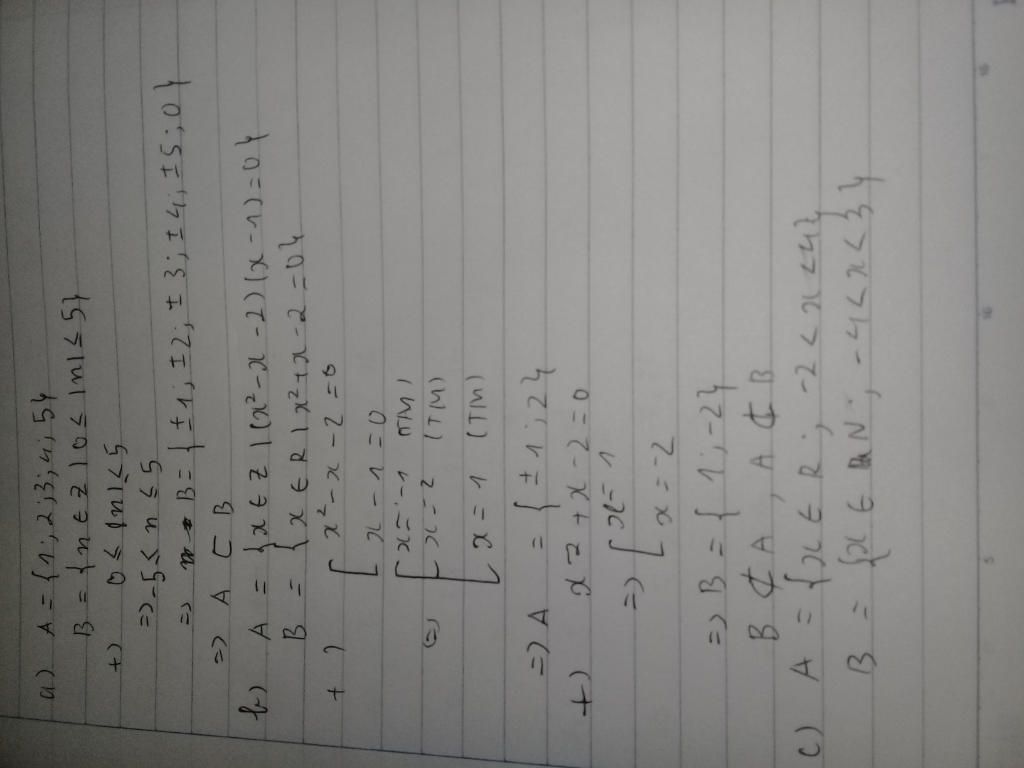 a) A = {1; 2; 3; 4; 5}
B = {n ∈ Z | 0 ≤ |n| ≤ 5}
+) 0 ≤ |n| ≤ 5
=> -5 ≤ n ≤ 5
=> B = {±1; ±2; ±3; ±4; ±5; 0}
=> A ⊂ B
b) A = {x ∈ Z | (x² - x - 2)(x - 1) = 0}
B = {x ∈ R | x² + x - 2 = 0}
+) [ x² - x - 2 = 0
[ x - 1 = 0
[ x = -1 (TM)
<=> [ x = 2 (TM)
[ x = 1 (TM)
=> A = {±1; 2}
+) x² + x - 2 = 0
=> [ x = 1
[ x = -2
=> B = {1; -2}
B ⊄ A, A ⊄ B
c) A = {x ∈ R; -2 < x < 4}
B = {x ∈ N; -4 < x < 3}